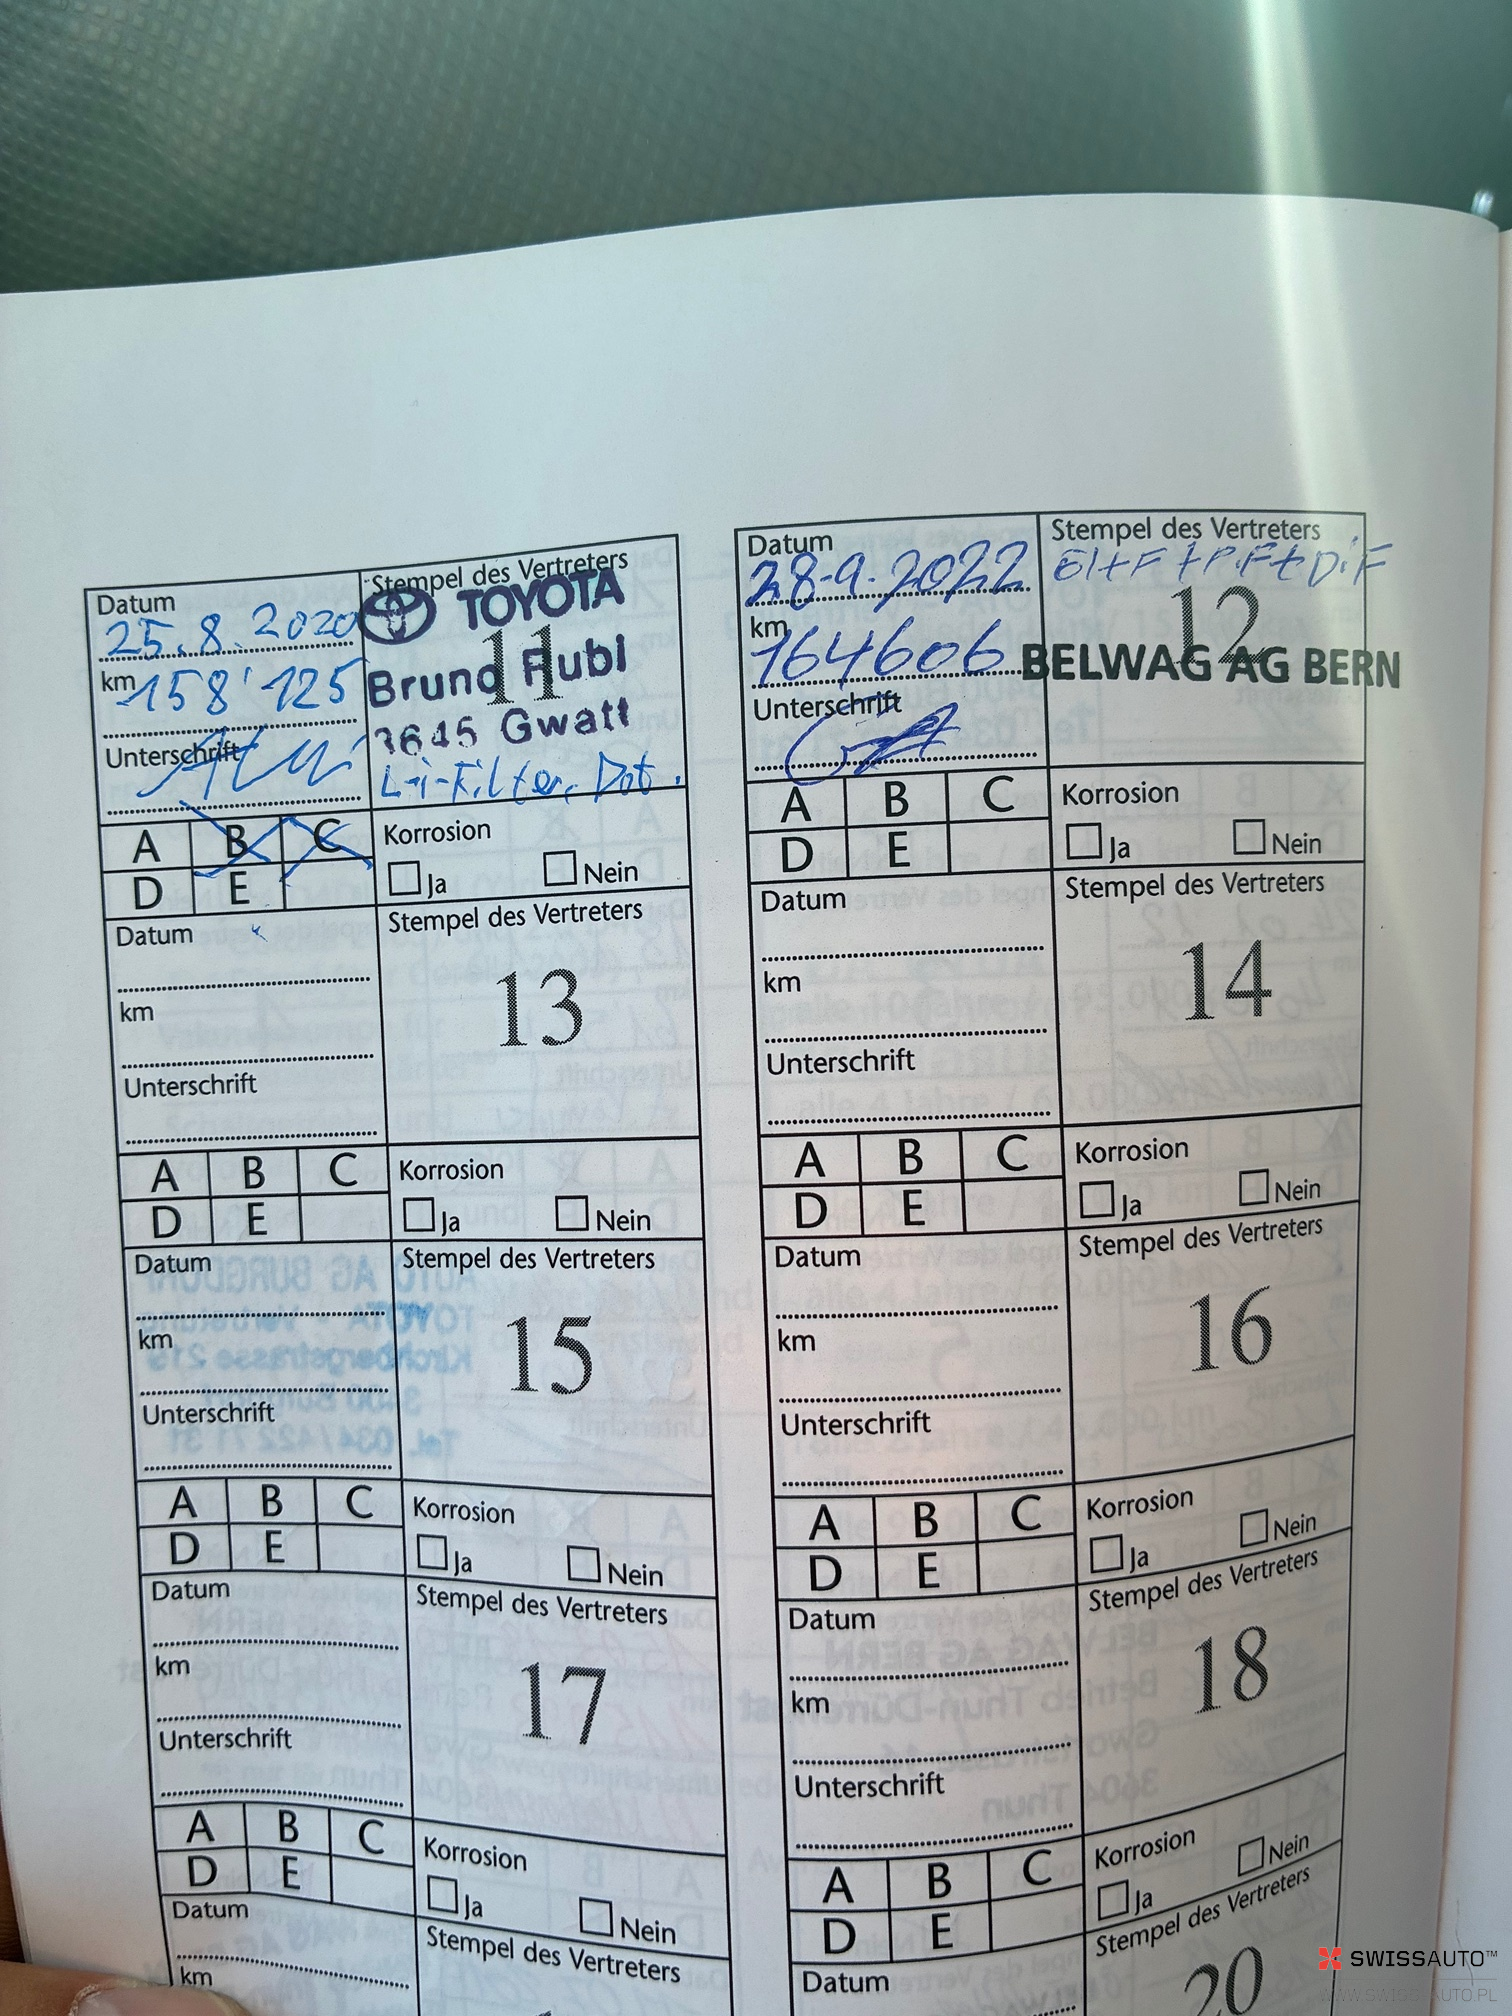 Datum
25.8.2020
km 158'125
Unterschrift
Stempel des Vertreters
TOYOTA
11
3645 Gwatt
A B C
D E
Korrosion
Ja Nein
Datum
28-9-2022
km
164606
Unterschrift
Stempel des Vertreters
12
BELWAG AG BERN
A B C
D E
Korrosion
Ja Nein
Datum
km
Unterschrift
Stempel des Vertreters
13
A B C
D E
Korrosion
Ja Nein
Datum
km
Unterschrift
Stempel des Vertreters
14
A B C
D E
Korrosion
Ja Nein
Datum
km
Unterschrift
Stempel des Vertreters
15
A B C
D E
Korrosion
Ja Nein
Datum
km
Unterschrift
Stempel des Vertreters
16
A B C
D E
Korrosion
Ja Nein
Datum
km
Unterschrift
Stempel des Vertreters
17
A B C
D E
Korrosion
Ja Nein
Datum
km
Unterschrift
Stempel des Vertreters
18
A B C
D E
Korrosion
Ja Nein
Datum
km
Stempel des Vertreters
Datum
Stempel des Vertreters
20
SWISSAUTO™
WWW.SWISSAUTO.PL